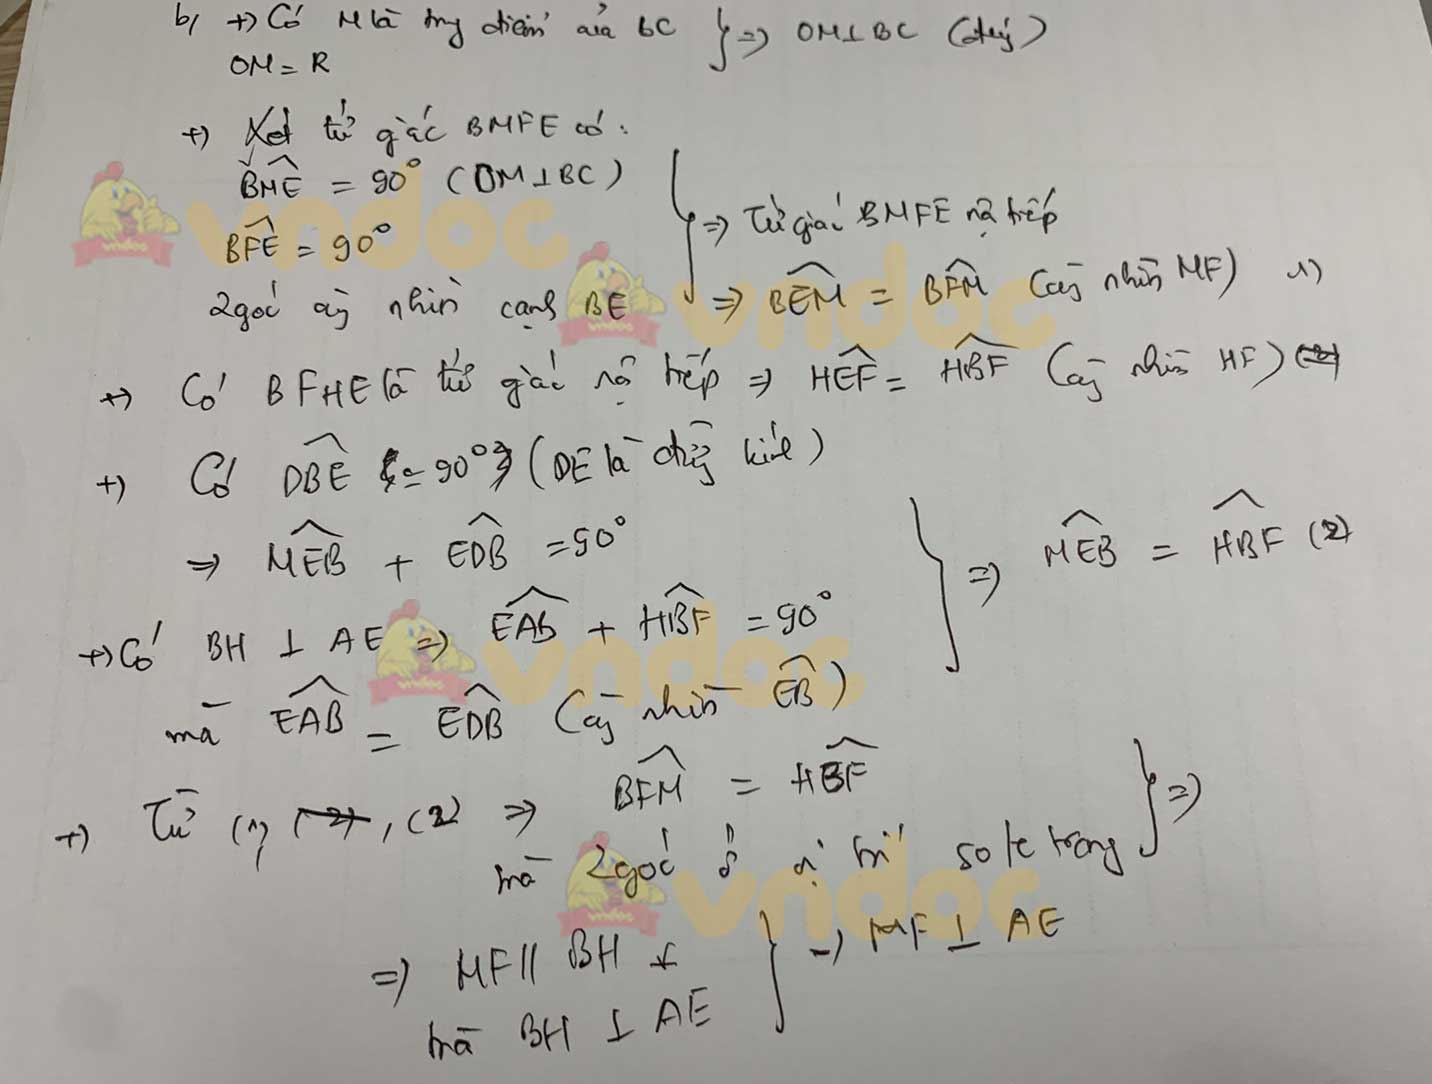 b, +) Có M là trung điểm của BC } => OM ⊥ BC (đlý)
OM = R
+) Xét tứ giác BMFE có:
BME = 90° (OM ⊥ BC)
BFE = 90°
2 góc cùng nhìn cạnh BE
=> Tứ giác BMFE nội tiếp
=> BEM = BFM (cùng nhìn MF) (1)
+) Có BFHE là tứ giác nội tiếp => HEF = HBF (cùng nhìn HF)
+) Có DBE = 90° (DE là đường kính)
=> MEB + EDB = 90°
+) Có BH ⊥ AE => EAB + HBF = 90°
mà EAB = EDB (cùng nhìn EB)
} => MEB = HBF (2)
+) Từ (1), (2) => BFM = HBF
mà 2 góc ở vị trí so le trong } =>
=> MF // BH
mà BH ⊥ AE } => MF ⊥ AE
vndoc
vndoc
vndoc
vndoc